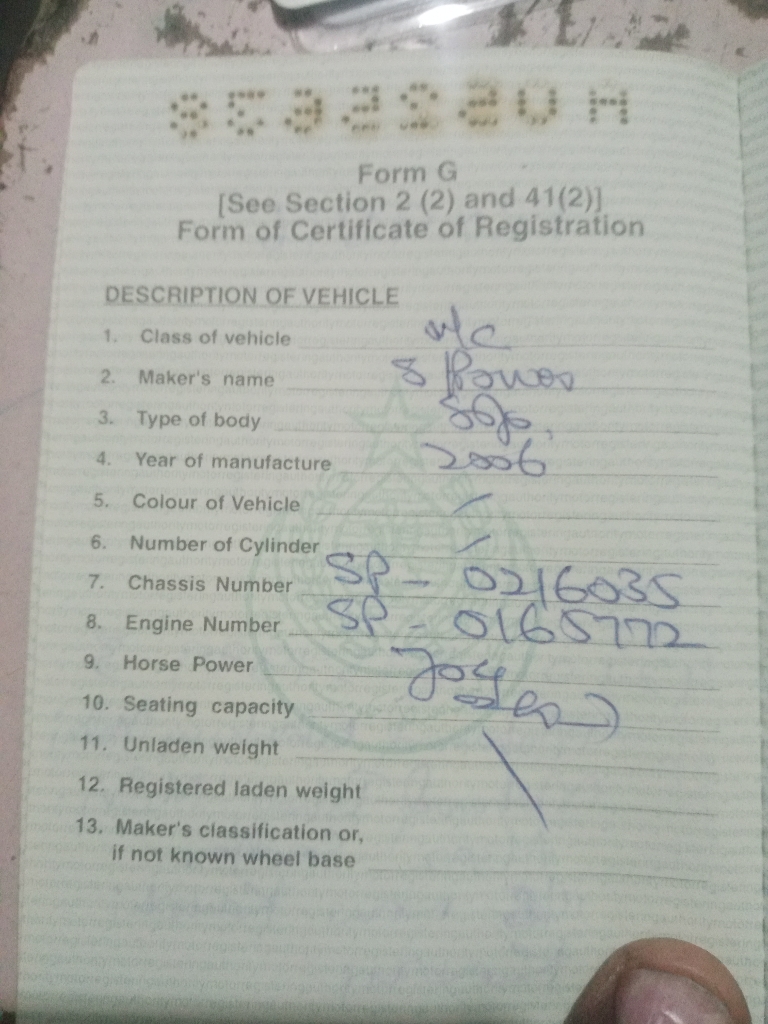 Form G
[See Section 2 (2) and 41(2)]
Form of Certificate of Registration
DESCRIPTION OF VEHICLE
1. Class of vehicle M/C
2. Maker's name S Power
3. Type of body
4. Year of manufacture 2006
5. Colour of Vehicle
6. Number of Cylinder
7. Chassis Number SP - 0216035
8. Engine Number SP - 0165772
9. Horse Power
10. Seating capacity
11. Unladen weight
12. Registered laden weight
13. Maker's classification or,
if not known wheel base